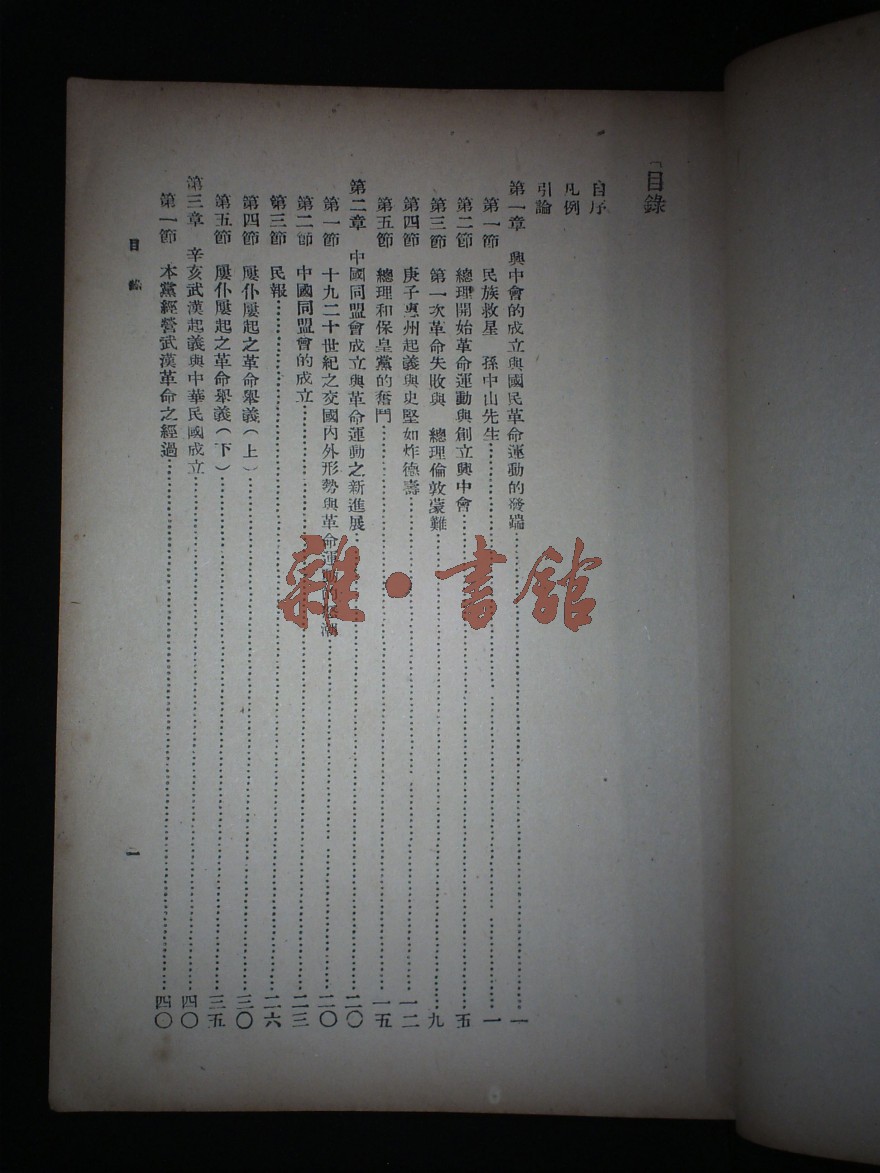 目錄
自序
凡例
引論
第一章 興中會的成立與國民革命運動的發端……一
第一節 民族救星 孫中山先生……一
第二節 總理開始革命運動與創立興中會……五
第三節 第一次革命失敗與 總理倫敦蒙難……九
第四節 庚子惠州起義與史堅如炸德壽……一二
第五節 總理和保皇黨的奮鬥……一五
第二章 中國同盟會成立與革命運動之新進展……二〇
第一節 十九二十世紀之交國內外形勢與革命運 潮……二〇
第二節 中國同盟會的成立……二三
第三節 民報……二六
第四節 屢仆屢起之革命舉義(上)……三〇
第五節 屢仆屢起之革命舉義(下)……三五
第三章 辛亥武漢起義與中華民國成立……四〇
第一節 本黨經營武漢革命之經過……四〇
目錄 一
雜·書館